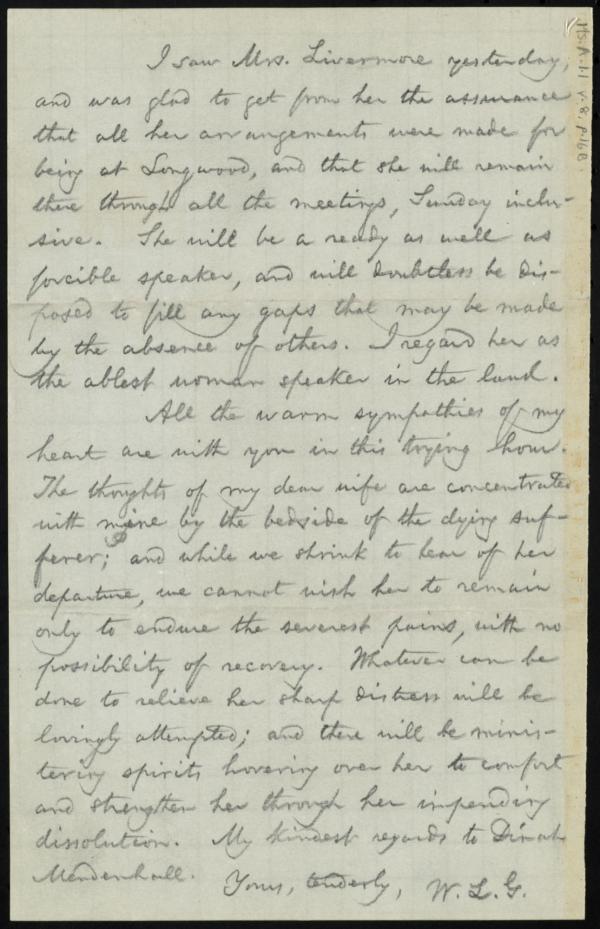 I saw Mrs. Livermore yesterday,
and was glad to get from her the assurance
that all her arrangements were made for
being at Longwood, and that she will remain
there through all the meetings, Sunday inclu-
sive. She will be a ready as well as
forcible speaker, and will doubtless be dis-
posed to fill any gaps that may be made
by the absence of others. I regard her as
the ablest woman speaker in the land.
All the warm sympathies of my
heart are with you in this trying hour.
The thoughts of my dear wife are concentrated
with mine by the bedside of the dying suf-
ferer; and while we shrink to hear of her
departure, we cannot wish her to remain
only to endure the severest pains, with no
possibility of recovery. Whatever can be
done to relieve her sharp distress will be
lovingly attempted; and there will be minis-
tering spirits hovering over her to comfort
and strengthen her through her impending
dissolution. My kindest regards to Dinah
Mendenhall.
Yours, tenderly, W. L. G.
Ms. A. 1.1 v. 8, p. 16B